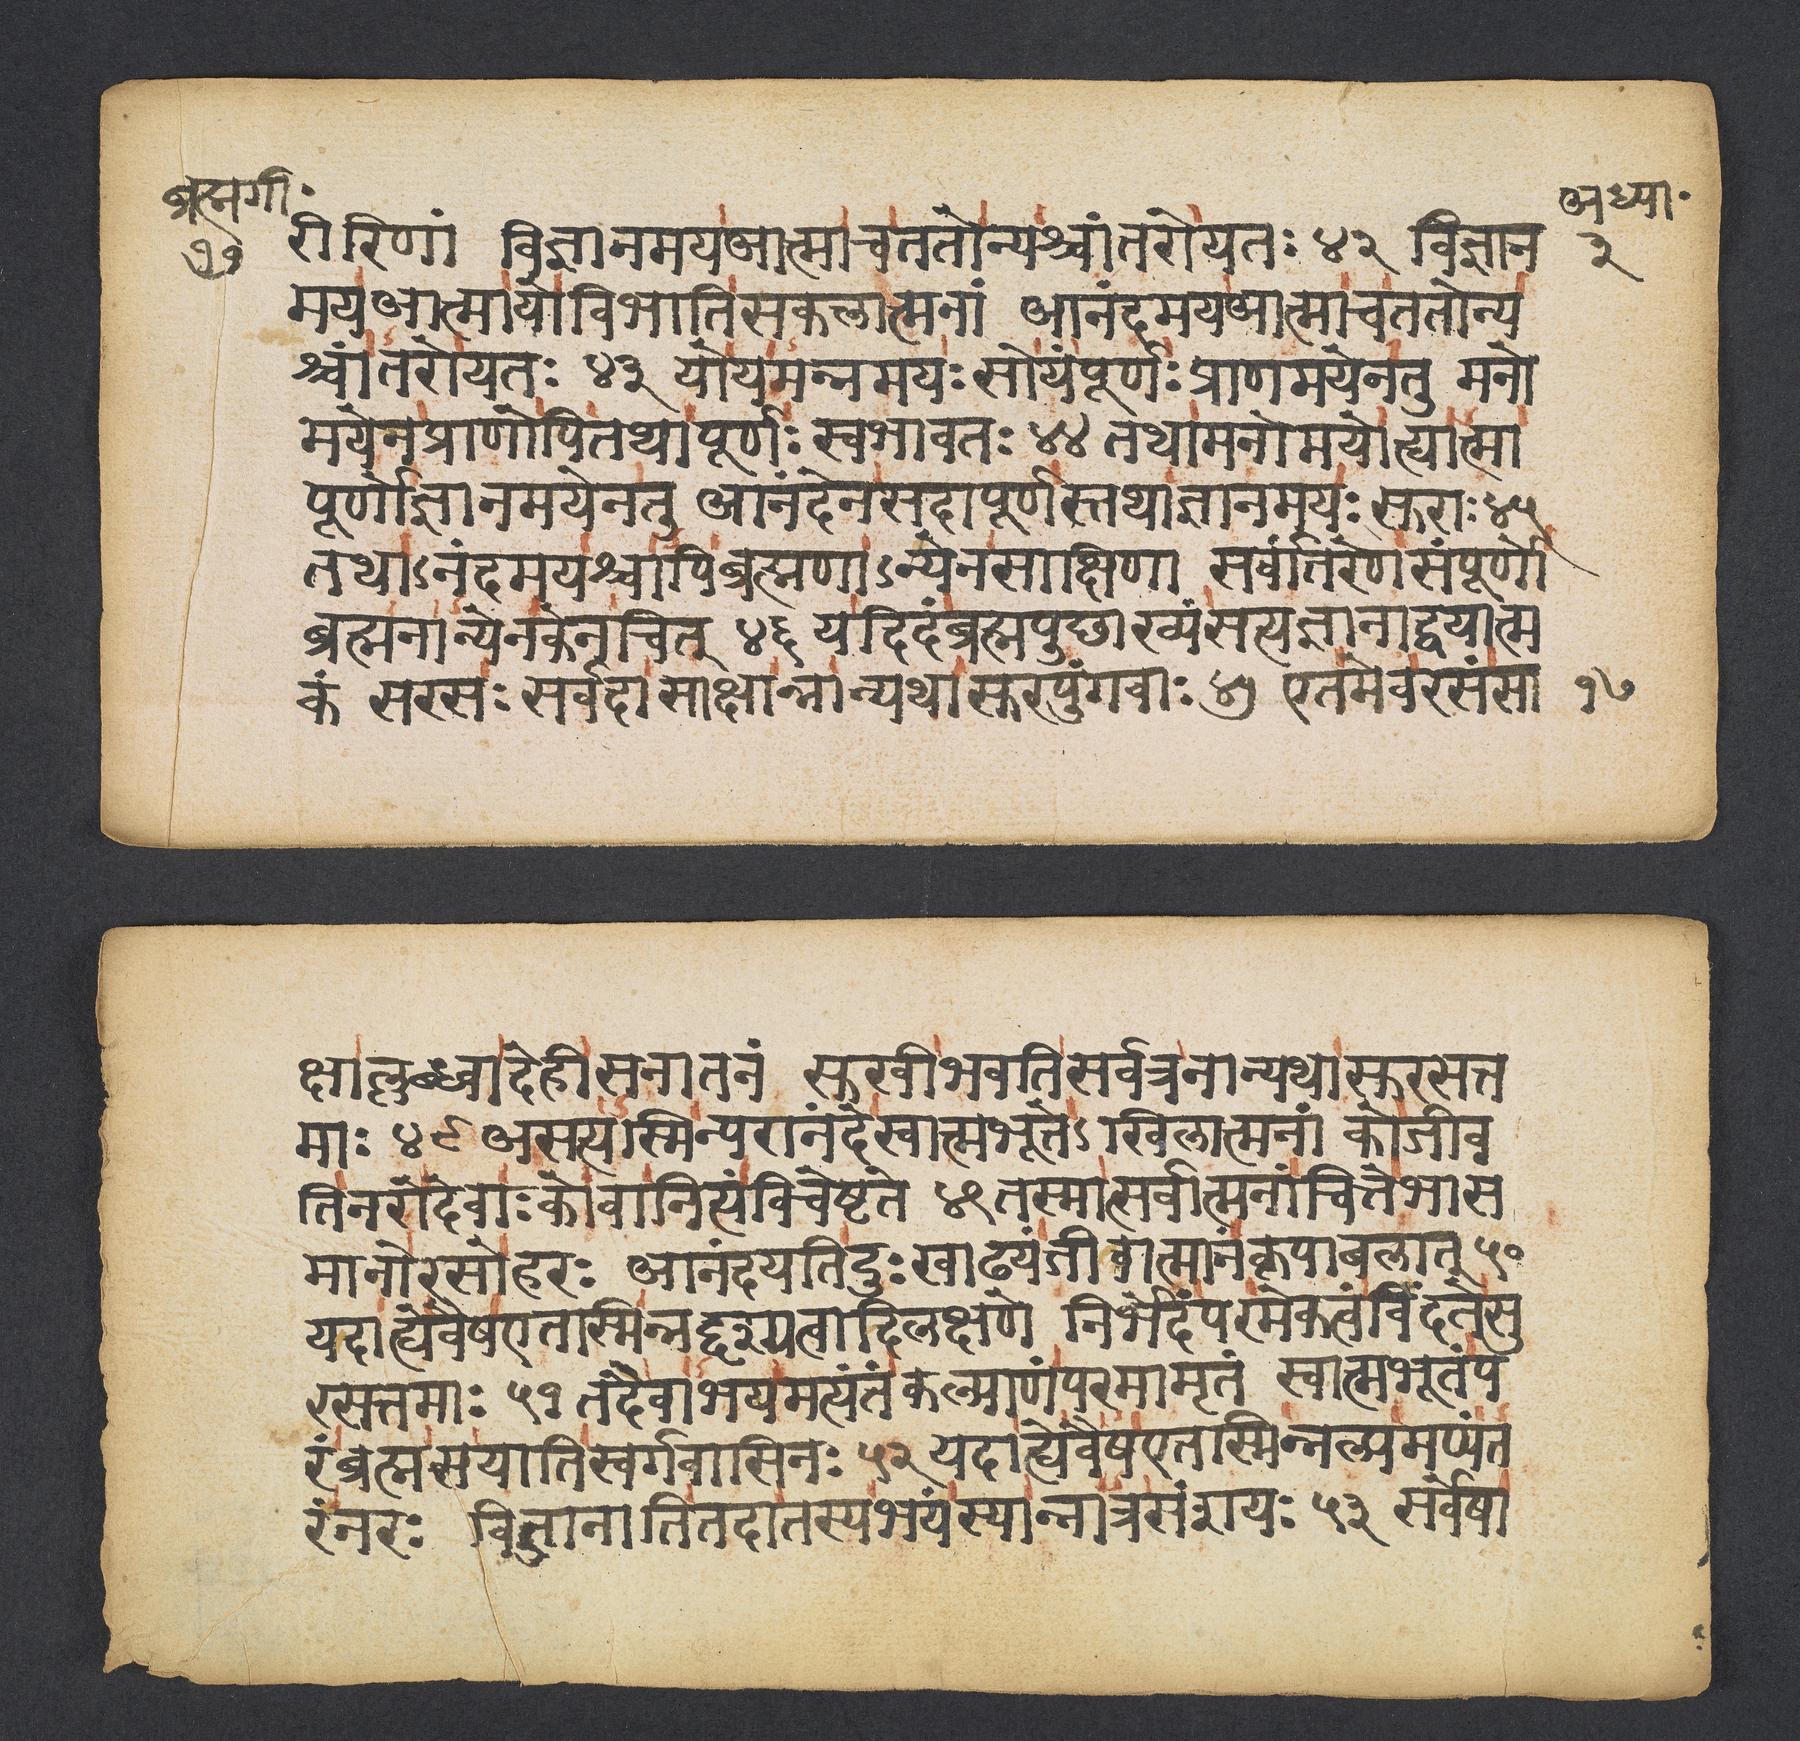 ब्रह्मगी॰
१७
अध्या॰
३
रीरिणां विज्ञानमयआत्माचततोन्यश्चांतरोयतः ४२ विज्ञान
मयआत्मायोविभातिसकलात्मनां आनंदमयआत्माचततोन्य
श्चांतरोयतः ४३ योयमन्नमयः सोयंपूर्णः प्राणमयेनतु मनो
मयेनप्राणोपितथापूर्णः स्वभावतः ४४ तथामनोमयोह्यात्मा
पूर्णोज्ञानमयेनतु आनंदेनसदापूर्णस्तथाज्ञानमयः सुराः ४५
तथाऽनंदमयश्चापिब्रह्मणाऽन्येनसाक्षिणा सर्वांतरेणसंपूर्णो
ब्रह्मनान्येनकेनचित् ४६ यदिदंब्रह्मपुछाख्यंसत्यज्ञानाद्वयात्म
कं सरसः सर्वदासाक्षान्नान्यथासुरपुंगवाः ४७ एतमेवरसंसा
१७
क्षाल्लब्ध्वादेहीसनातनं सुखीभवतिसर्वत्रनान्यथासुरसत्त
माः ४८ असत्यस्मिन्परानंदेस्वात्मभूतेऽखिलात्मनां कोजीव
तिनरोदेवाः कोवानित्यंविचेष्टते ४९ तस्मात्सर्वात्मनांचित्तेभास
मानोरसोहरः आनंदयतिदुःखाढ्यंजीवात्मानंकृपाबलात् ५०
यदाह्येवैषएतस्मिन्नदृश्यत्वादिलक्षणे निर्भेदंपरमेकत्वंविंदतेसु
रसत्तमाः ५१ तदैवाभयमत्यंतंकल्याणंपरमामृतं स्वात्मभूतंप
रंब्रह्मसयातिस्वर्गवासिनः ५२ यदाह्येवैषएतस्मिन्नल्पमप्यंत
रंनरः विजानातितदातस्यभयंस्यान्नात्रसंशयः ५३ सर्वेषा